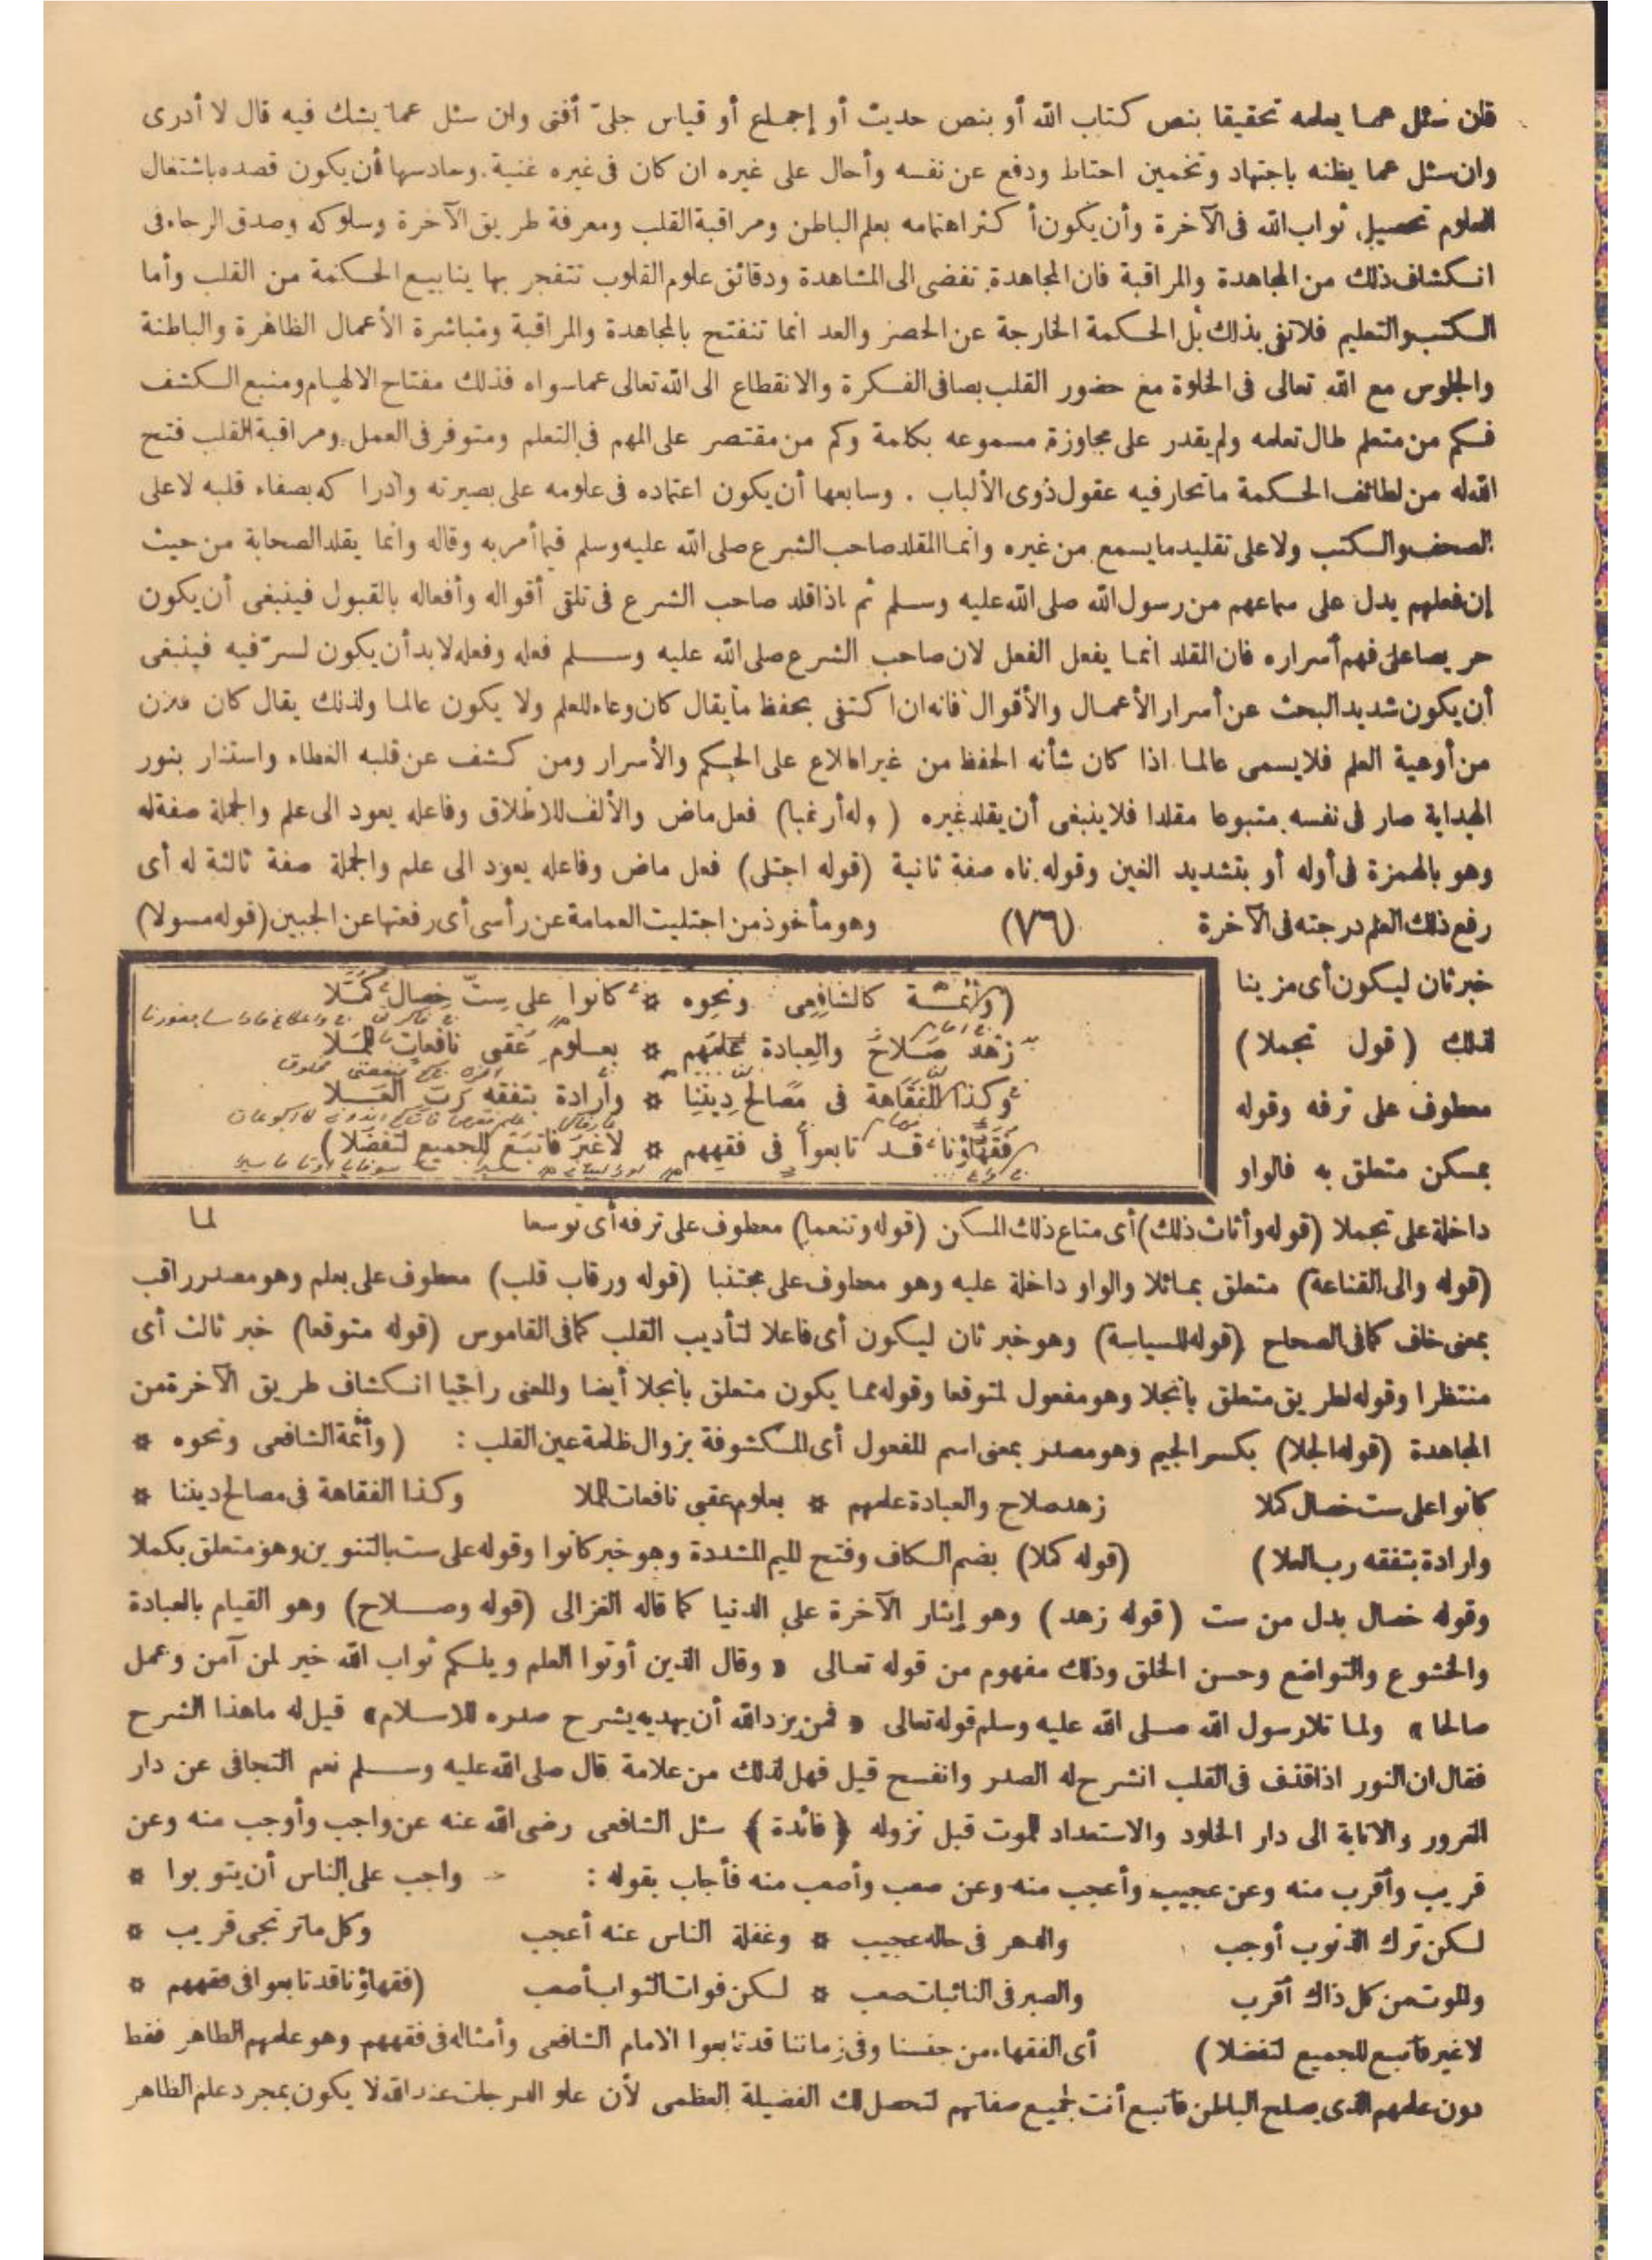 فان سئل عما يعلمه تحقيقا بنص كتاب الله أو بنص حديث أو إجماع أو قياس جلىّ أفتى وان سئل عما يشك فيه قال لا أدرى
وان سئل عما يظنه باجتهاد وتخمين احتاط ودفع عن نفسه وأحال على غيره ان كان فى غيره غنية. وسادسها أن يكون قصده باشتغال
العلوم تحصيل ثواب الله فى الآخرة وأن يكون أكثر اهتمامه بعلم الباطن ومراقبة القلب ومعرفة طريق الآخرة وسلوكه وصدق الرجاء فى
انكشاف ذلك من المجاهدة والمراقبة فان المجاهدة تفضى الى المشاهدة ودقائق علوم القلوب تتفجر بها ينابيع الحكمة من القلب وأما
الكتب والتعليم فلا تفى بذلك بل الحكمة الخارجة عن الحصر والعد انما تنفتح بالمجاهدة والمراقبة ومباشرة الأعمال الظاهرة والباطنة
والجلوس مع الله تعالى فى الخلوة مع حضور القلب بصافى الفكرة والانقطاع الى الله تعالى عما سواه فذلك مفتاح الالهام ومنبع الكشف
فكم من متعلم طال تعلمه ولم يقدر على مجاوزة مسموعه بكلمة وكم من مقتصر على المهم فى التعلم ومتوفر فى العمل ومراقبة القلب فتح
الله له من لطائف الحكمة ما تحار فيه عقول ذوى الألباب . وسابعها أن يكون اعتماده فى علومه على بصيرته وادراكه بصفاء قلبه لا على
الصحف والكتب ولا على تقليد ما يسمع من غيره وانما المقلد صاحب الشرع صلى الله عليه وسلم فيما أمر به وقاله وانما يقلد الصحابة من حيث
إن فعلهم يدل على سماعهم من رسول الله صلى الله عليه وسلم ثم اذا قلد صاحب الشرع فى تلقى أقواله وأفعاله بالقبول فينبغى أن يكون
حريصا على فهم أسراره فان المقلد انما يفعل الفعل لان صاحب الشرع صلى الله عليه وسلم فعله وفعله لا بد أن يكون لسرّ فيه فينبغى
أن يكون شديد البحث عن أسرار الأعمال والأقوال فانه ان اكتفى بحفظ ما يقال كان وعاء للعلم ولا يكون عالما ولذلك يقال كان فلان
من أوعية العلم فلا يسمى عالما اذا كان شأنه الحفظ من غير اطلاع على الحكم والأسرار ومن كشف عن قلبه الغطاء واستنار بنور
الهداية صار فى نفسه متبوعا مقلدا فلا ينبغى أن يقلد غيره (قوله أرغبا) فعل ماض والألف للاطلاق وفاعله يعود الى علم والجملة صفة له
وهو بالهمزة فى أوله أو بتشديد الغين وقوله ناه صفة ثانية (قوله اجتلى) فعل ماض وفاعله يعود الى علم والجملة صفة ثالثة له أى
رفع ذلك العلم درجته فى الآخرة (٧٦) وهو مأخوذ من اجتليت العمامة عن رأسى أى رفعتها عن الجبين (قوله مسولا)
خبر ثان ليكون أى مزينا
لذلك (قول تجملا)
معطوف على ترفه وقوله
بمسكن متعلق به فالواو
(وأئمَّة كالشافعِى ونحوه * كانوا على ستّ خصال كُمَّلا
زهد صَلاحٌ والعبادة علمهم * بعلوم عُقبى نافعات للملا
وكذا الفَقَاهة فى مصالح ديننِا * وارادة بتفقه ربَّ العلا
فقهاؤنا قد تابعوا فى فقههم * لا غيرَ فاتبع للجميع لتفضلا)
داخلة على تجملا (قوله وأثاث ذلك) أى متاع ذلك المسكن (قوله وتنعما) معطوف على ترفه أى توسعا لما
(قوله والى القناعة) متعلق بمائلا والواو داخلة عليه وهو معطوف على مجتنبا (قوله ورقاب قلب) معطوف على بعلم وهو مصدر راقب
بمعنى خاف كما فى الصحاح (قوله للسياسة) وهو خبر ثان ليكون أى فاعلا لتأديب القلب كما فى القاموس (قوله متوقعا) خبر ثالث أى
منتظرا وقوله لطريق متعلق بانجلا وهو مفعول لمتوقعا وقوله مما يكون متعلق بانجلا أيضا والمعنى راجيا انكشاف طريق الآخرة من
المجاهدة (قوله الجلا) بكسر الجيم وهو مصدر بمعنى اسم المفعول أى المكشوفة بزوال ظلمة عين القلب : (وأئمة الشافعى ونحوه *
كانوا على ست خصال كملا زهد صلاح والعبادة علمهم * بعلوم عقبى نافعات للملا وكذا الفقاهة فى مصالح ديننا *
وارادة بتفقه رب العلا) (قوله كملا) بضم الكاف وفتح الميم المشددة وهو خبر كانوا وقوله على ست بالتنوين وهو متعلق بكملا
وقوله خصال بدل من ست (قوله زهد) وهو إيثار الآخرة على الدنيا كما قاله الغزالى (قوله وصلاح) وهو القيام بالعبادة
والخشوع والتواضع وحسن الخلق وذلك مفهوم من قوله تعالى « وقال الذين أوتوا العلم ويلكم ثواب الله خير لمن آمن وعمل
صالحا » ولما تلا رسول الله صلى الله عليه وسلم قوله تعالى « فمن يرد الله أن يهديه يشرح صدره للاسلام » قيل له ما هذا الشرح
فقال ان النور اذا قذف فى القلب انشرح له الصدر وانفسح قيل فهل لذلك من علامة قال صلى الله عليه وسلم نعم التجافى عن دار
الغرور والانابة الى دار الخلود والاستعداد للموت قبل نزوله ﴿ فائدة ﴾ سئل الشافعى رضى الله عنه عن واجب وأوجب منه وعن
قريب وأقرب منه وعن عجيب وأعجب منه وعن صعب وأصعب منه فأجاب بقوله : واجب على الناس أن يتوبوا *
لكن ترك الذنوب أوجب والدهر فى حاله عجيب * وغفلة الناس عنه أعجب وكل ما ترتجى قريب *
والموت من كل ذاك أقرب والصبر فى النائبات صعب * لكن فوات الثواب أصعب (فقهاؤنا قد تابعوا فى فقههم *
لا غير فاتبع للجميع لتفضلا) أى الفقهاء من جنسنا وفى زماننا قد تابعوا الامام الشافعى وأمثاله فى فقههم وهو علمهم الظاهر فقط
دون علمهم الذى يصلح الباطن فاتبع أنت لجميع صفاتهم لتحصل لك الفضيلة العظمى لأن علو الدرجات عند الله لا يكون بمجرد علم الظاهر